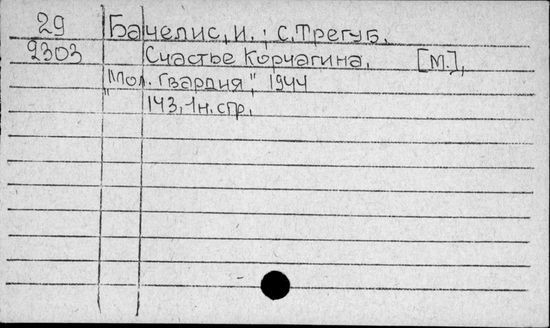 29 Бачелис, И. ; С. Трегуб.
9303 Счастье Корчагина. [М.],
"Мол. Гвардия", 1944
143, 1н. стр.